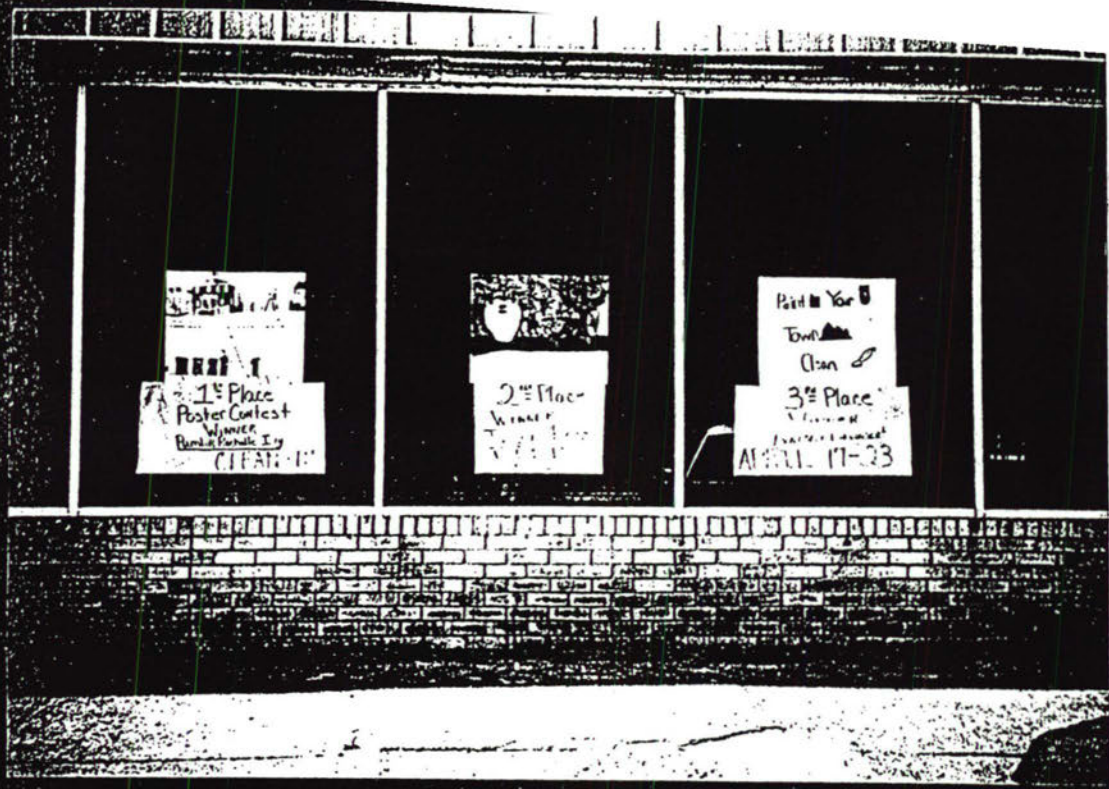 1st Place
Poster Contest
WINNER
CLEAN-UP
2nd Place
WINNER
Paint Your
Town
Clean
3rd Place
WINNER
APRIL 17-23